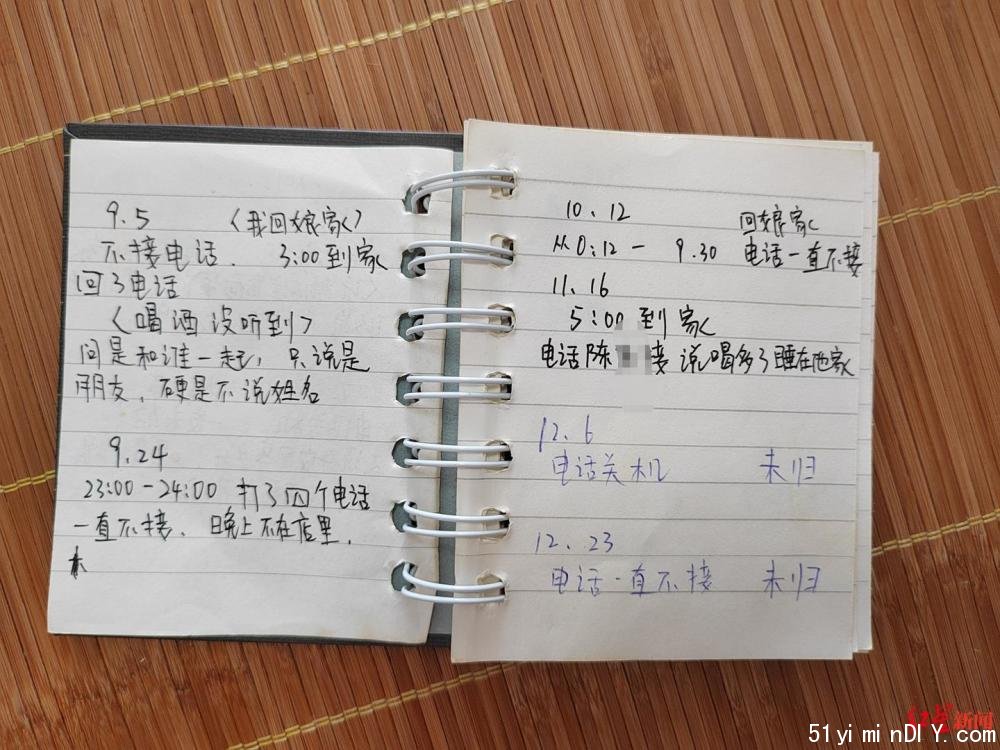 9.5 〈我回娘家〉
不接电话. 3:00到家
回了电话
〈喝酒没听到〉
问是和谁一起, 只说是
朋友. 硬是不说姓名
9.24
23:00-24:00 打了四个电话
一直不接. 晚上不在店里.
10.12 回娘家
从0:12- 9.30 电话一直不接
11.16
5:00到家
电话陈 接说喝多了睡在他家
12.6
电话关机 未归
12.23
电话一直不接 未归
红星新闻
51yi mi nDI Y. com